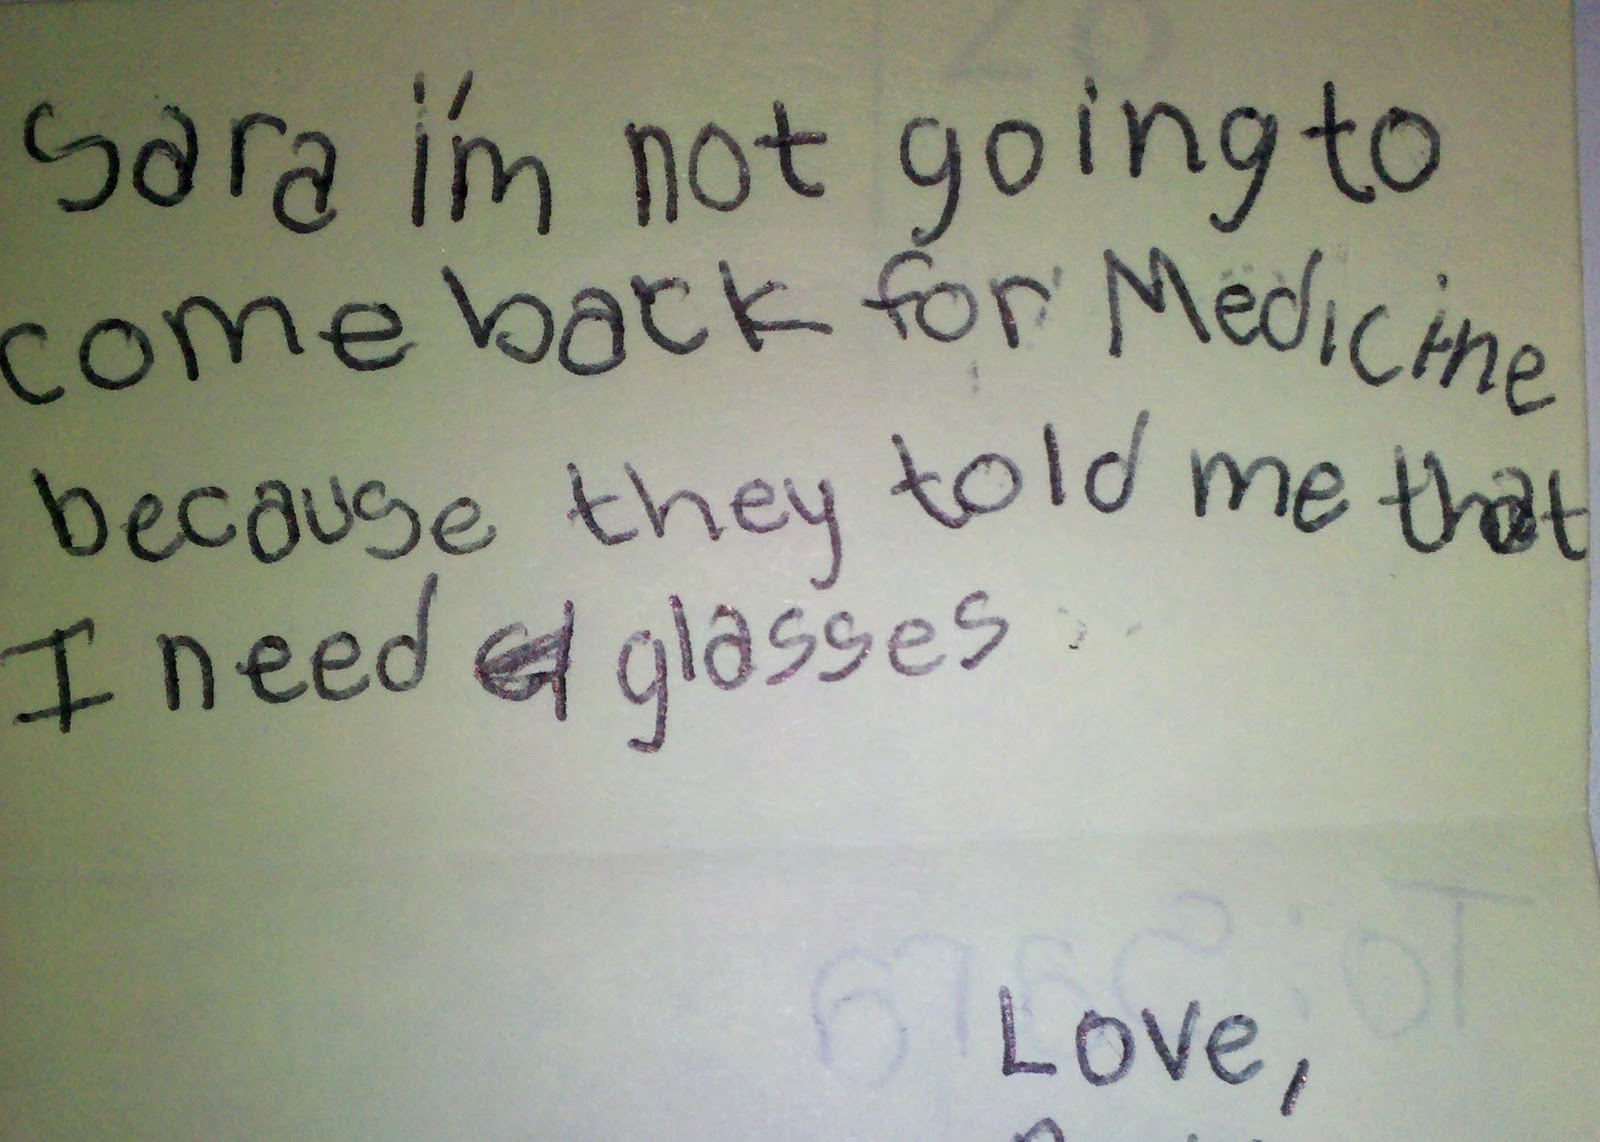 Sara i'm not going to
come back for Medicine
because they told me that
I need glasses
To: Sara
Love,